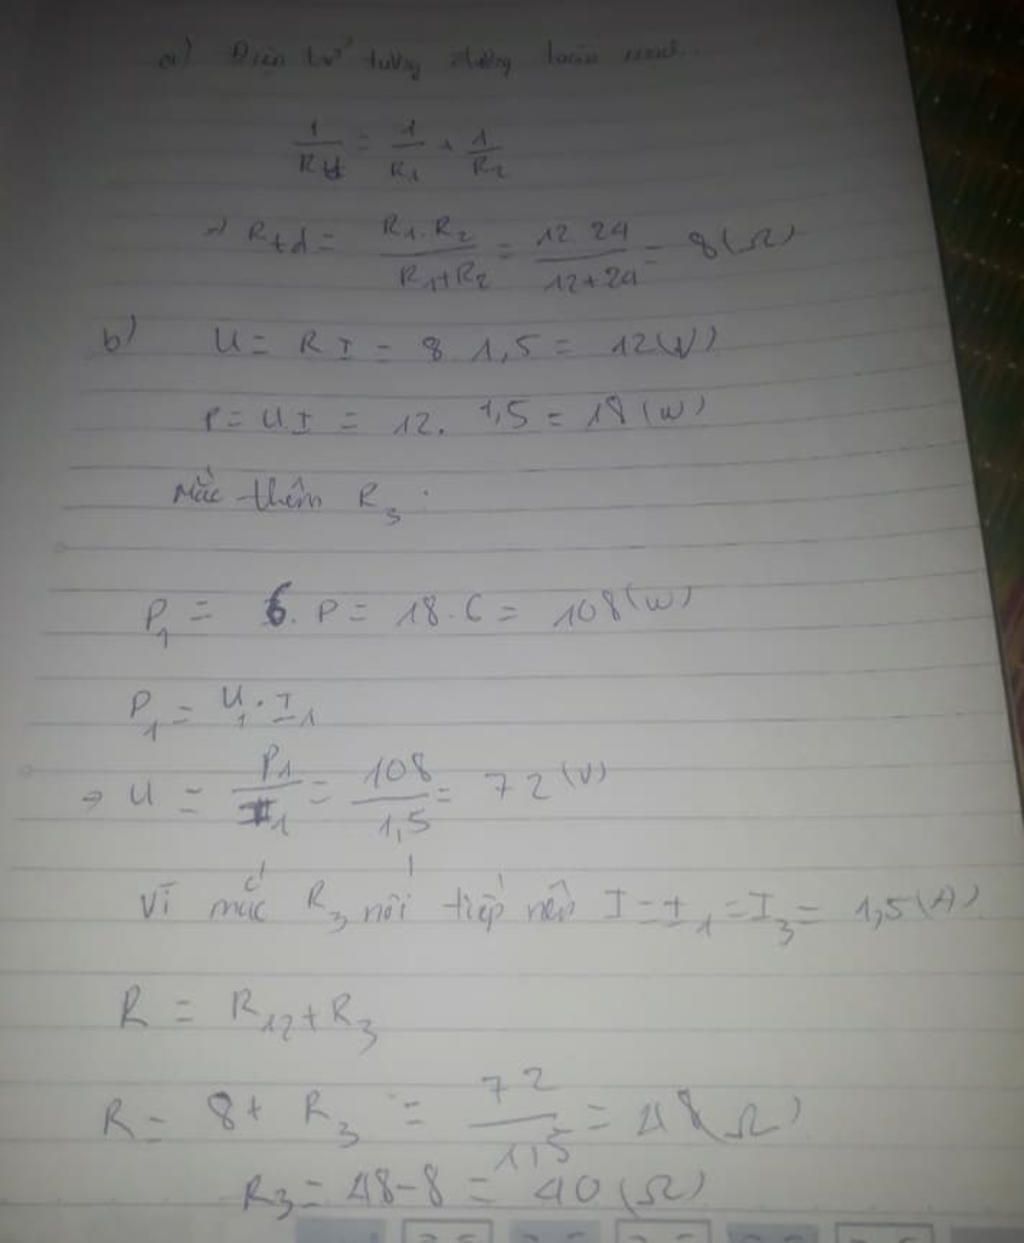 a) Điện trở tương đương toàn mạch.
1/Rtđ = 1/R1 + 1/R2
=> Rtd = R1.R2/R1+R2 = 12 24/12+24 = 8(Ω)
b) U = R I = 8 1,5 = 12(V)
P = U.I = 12. 1,5 = 18(W)
Mắc thêm R3.
P1 = 6. P = 18.6 = 108(W)
P1 = U1.I1
=> U = P1/I1 = 108/1,5 = 72(V)
Vì mắc R3 nối tiếp nên I = I1 = I3 = 1,5(A)
R = R12 + R3
R = 8 + R3 = 72/1,5 = 48(Ω)
R3 = 48-8 = 40(Ω)